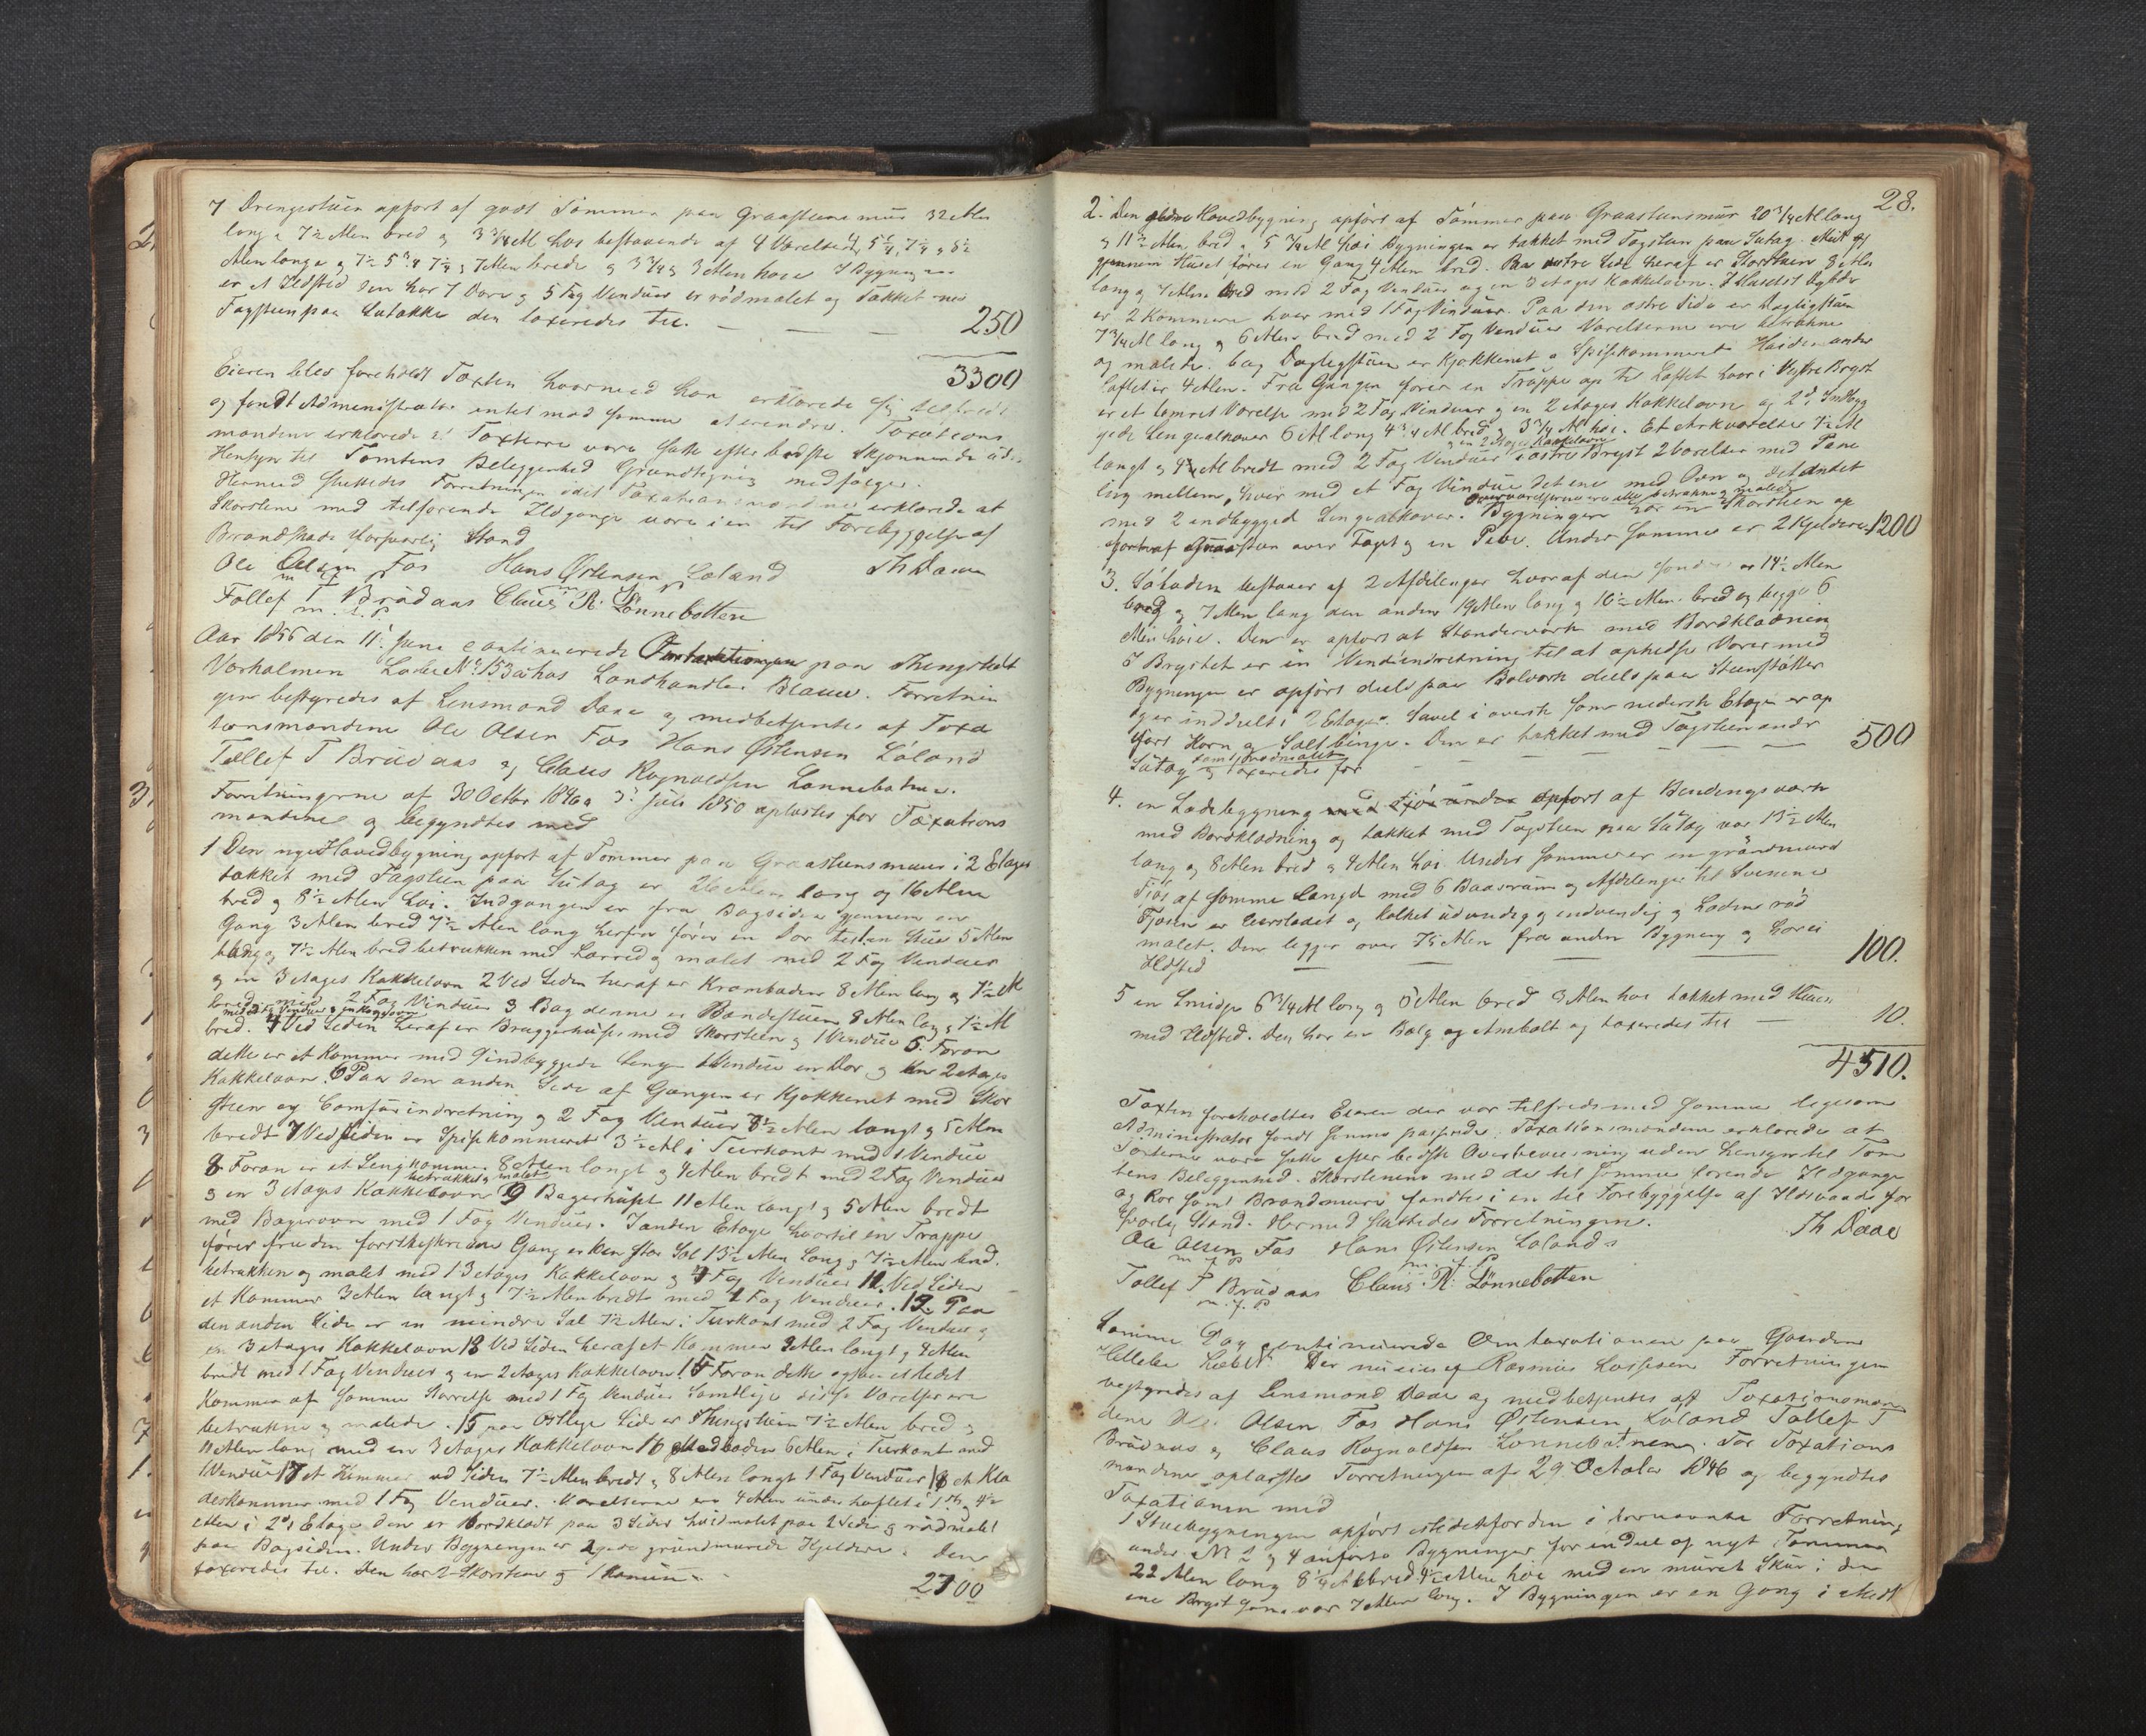 7 Drengestuen opført af godt Tømmer paa Graasteensmuur 32 Alen
lang 7½ Alen bred og 3¾ Al høi bestaaende af 4 Værelser 4, 5¼, 7¼ og 8½
Alen lange og 7½ 5¾ 7¼ og 7 Alen brede og 3¾ og 3 Alen høie I Bygningen
er et Ildsted den har 7 Døre og 5 Fag Vinduer er rødmalet og Takket med
Tagsteen paa Sutække den taxeredes til. — — — 250
3300
Eieren blev foreholdt Taxten hvormed han erklærede sig tilfreds
og fandt Administrator intet mod samme at erindre. Taxations
mændene erklærede at Taxterne vare satte efter bedste Skjønnende uden
Hensyn til Tomtens Beleggenhed Grundtigning medfølger.
Hermed sluttedes Forretningen idet Taxationsmændene erklærede at
Skorstene med tilførende Ildgange vare i en til Forebyggelse af
Brandskade forsvarlig Stand
Ole Olsen Fos Hans Østensen Løland Th Daae
m f P
Tollef T Brudaas Claus R: Lønnebotten
m. f. P
Aar 1856 den 11' Juni continuerede Omtaxtationen paa Thingstedt
Vorholmen Løbe No 153a hos Landhandler Blauw. Forretnin
gen bestyredes af Lensmand Daae og medbetjentes af Taxa
tionsmændene Ole Olsen Fos Hans Østensen Løland
Tollef T Brudaas og Claus Ragnaldsen Lønnebotnen.
Forretningerne af 30 Octbr 1846 og 3' Juli 1850 oplæstes for Taxations
mændene og begyndtes med
1 Den nye Hovedbygning opført af Tømmer paa Graasteensmuur i 2 Etager
takket med Tagsteen paa Sutag er 26 Alen lang og 16 Alen
bred og 8½ Alen høi. Indgangen er fra Bagsiden gjennem en
Gang 3 Alen bred 7½ Alen lang herfra fører en Dør til en Stue 5 Alen
lang og 7½ Alen bred betrukken med Lærred og malet med 2 Fag Vinduer
og en 3 etages Kakkelovn 2 Ved Siden heraf er Kramboden 8 Alen lang og 7½ Al
bred med 2 Fag Vinduer 3 Bag denne er Bondestuen 8 Alen lang 7½ Al
med 2 Fag Vinduer og en Kakkelovn
bred. 4 Ved Siden heraf er Bryggerhuset med Skorsteen og 1 Vindue 5. Foran
dette er et Kammer med Indbyggede Senge 1 Vindue en Dør og en 2 etages
Kakkelovn. 6 Paa den anden Side af Gangen er Kjøkkenet med Skor
steen og Comfurindretning og 2 Fag Vinduer 8½ Alen langt og 5 Alen
bredt 7 Ved Siden er Spisekammeret 3½ Al i Fiirkant med 1 Vindue
8 Foran er et Sengkammer 8 Alen langt og 4 Alen bredt med 2 Fag Vinduer
betrukket og malet
og en 3 etages Kakkelovn 9 Bagerhuset 11 Alen langt og 5 Alen bredt
med Bagerovn med 1 Fag Vinduer. I anden Etage hvortil en Trappe
fører fra den førstbeskrevne Gang er en stor Sal 13½ Alen lang og 7½ Alen bred.
betrukken og malet med 1 3 etages Kakkelovn og 4 Fag Vinduer 11. Ved Siden
et Kammer 3 Alen langt og 7½ Alen bredt med 1 Fag Vinduer. 12. Paa
den anden Side er en mindre Sal 7½ Alen i Fiirkant med 2 Fag Vinduer og
en 3 etages Kakkelovn 13 Ved Siden heraf et Kammer 3 Alen langt og 4 Alen
bredt med 1 Fag Vinduer og en 2 etages Kakkelovn 14 Foran dette ogsaa et lidet
Kammer af samme Størrelse med 1 Fag Vinduer Samtlige disse Værelser ere
betrukne og malede. 15 paa Østlige Side er Thingstuen 7½ Alen bred og
11 Alen lang med en 3 etages Kakkelovn 16 Madboden 6 Alen i Fiirkant med
1 Vindue 17 et Kammer ved Siden 7½ Alen bredt og 8 Alen langt 1 Fag Vinduer 18 et Klæ
deskammer med 1 Fag Vinduer. Værelserne ere 4 Alen under Loftet i 1ste og 4½
Alen i 2d Etage den er bordklædt paa 3 Sider hvidmalet paa 2 Sider og rødmalet
paa Bagsiden. Under Bygningen er 2 gode grundmurede Kjeldere. den
taxeredes til. Den har 2 Skorstene og 2700
28.
2. Den ældre Hovedbygning opført af Tømmer paa Graasteensmuur 20¾ Al lang
og 11½ Alen bred og 5¾ Al høi Bygningen er takket med Tagsteen paa Sutag. Midt
gjennem Huset fører en Gang 4 Alen bred. Paa vestre Side heraf er Storstuen 8 Alen
lang og 7 Alen bred med 2 Fag Vinduer og en 3 etages Kakkelovn. I Husets Dybde
er 2 Kammere hver med 1 Fag Vinduer. Paa den østre Side er Dagligstuen
7¾ Al lang og 6 Alen bred med 2 Fag Vinduer Værelserne ere betrukne
og malede. bag Dagligstuen er Kjøkkenet og Spisekammeret Høiden under
loftet er 4 Alen. Fra Gangen fører en Trappe op til Loftet hvor i Vestre Bryst
er et tømret Værelse med 2 Fag Vinduer og en 2 etages Kakkelovn og 2de Indbyg
gede Sengealkover 6 Al lang 4¾ Al bred og 3¾ Al høi. Et Arkværelse 7½ Al
og en 2 etages Kakkelovn
langt og 4¾ Al bredt med 2 Fag Vinduer i østre Bryst 2 Værelser med Pane
ling mellem, hver med et Fag Vindue det ene med Ovn og det andet
Overværelserne ere alle betrukne og malede
med 2 indbyggede Sengealkover. Bygningen har en Skorsteen op
ført af Graasteen over Taget og en Pibe. Under samme er 2 Kjeldere. 1200
3. Søboden bestaaer af 2 Afdelinger hvoraf den søndre er 14½ Alen
bred og 7 Alen lang den anden 19 Alen lang og 16½ Alen bred og begge 6
Alen høie. Den er opført af Standerverk med Bordklædning
I Brystet er en Vindeindretning til at ophedse Varer med
Bygningen er opført deels paa Bolverk deels paa Steenstøtter
og er inddeelt i 2 Etager. Saavel i øverste som nederste Etage er op
ført Korn og Saltbinge. Den er takket med Tagsteen under
samt rødmalet
Sutag og taxeredes for — — — — 500
4. en Ladebygning opført af Bindingsverk
med Bordklædning og takket med Tagsteen paa Sutag var 13½ Alen
lang og 8 Alen bred og 4 Alen høi Under samme er en grundmuret
Fjøs af samme Længd med 6 Baasrum og Afdelinger til Sviinene
Fjøsen er leersladet og kalket udvendig og indvendig og Laden rød
malet. Den ligger over 75 Alen fra anden Bygning og hører ei
Ildsted — — — — 100.
5 en Smidje 6¾ Al lang og 5 Alen bred 3 Alen høi takket med Heller
med Ildsted. Den har en Bælg og Ambolt og taxeredes til — 10.
4510.
Taxten foreholdtes Eieren der var tilfreds med samme ligesom
Administrator fandt samme passende. Taxationsmændene erklærede at
Taxterne vare satte efter bedste Overbeviisning uden Hensyn til Tom
tens Beleggenhed. Skorstenene med de til samme førende Ildgange
og Rør samt Brandmure fandtes i en til Forebyggelse af Ildsvaade for
svarlig Stand. Hermed sluttedes Forretningen.
Th Daae
Ole Olsen Fos Hans Østensen Løland
m f P m. f. P
Tollef T Brudaas Claus. R: Lønnebotten
m. f. P
Samme Dag continuerede Omtaxationen paa Gaarden
Hellebø Der nu eies af Rasmus Lassesen Forretningen
bestyredes af Lensmand Daae og medbetjentes af Taxationsmæn
dene Ole Olsen Fos Hans Østensen Løland Tollef T
Brudaas og Claus Ragnaldsen Lønnebotnen. For Taxations
mændene oplæstes Forretningen af 29 October 1846 og begyndtes
Taxationen med
1 Stuebygningen opført istedetfor den i førnævnte Forretning
under No 1 og 4 anførte Bygninger for en deel af nyt Tømmer
22 Alen lang 8¼ Al bred 4½ Alen høi med en muret Skuur i den
ene Bryst som var 7 Alen lang. I Bygningen er en Gang i Midt